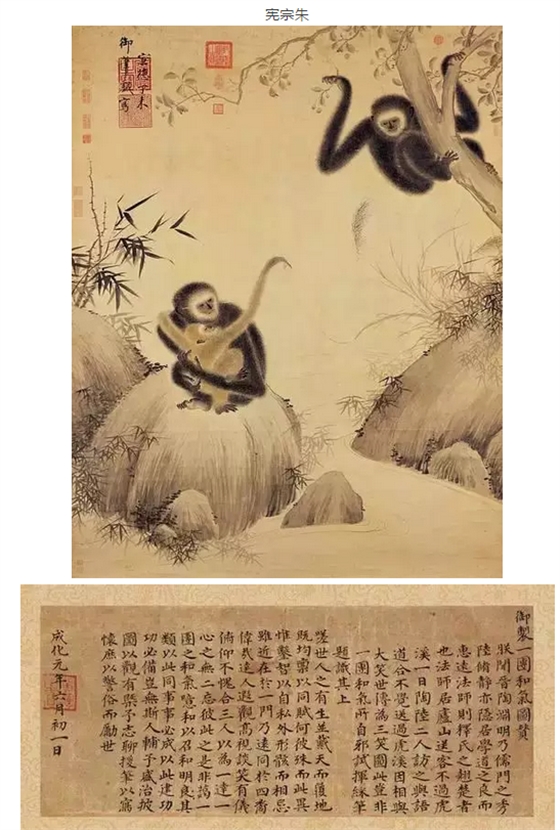 宪宗朱
宣德丁未
御筆戲寫
御製一團和氣圖贊
朕聞晉陶淵明乃儒門之秀
陸脩靜亦隱居學道之良而
惠遠法師則釋氏之翹楚者
也法師居廬山送客不過虎
溪一日陶陸二人訪之與語
道合不覺送過虎溪因相與
大笑世傳為三笑圖此豈非
一團和氣所自邪試揮綵筆
題識其上
嗟世人之有生並戴天而履地
既均稟以同賦何彼殊而此異
惟鑿智以自私外形骸而相忌
雖近在於一門乃遠同於四裔
偉哉達人遐觀高視談笑有儀
俯仰不愧合三人以為一達一
心之無二忘彼此之是非藹一
團之和氣噫和以召和明良其
類以此同事事必成以此建功
功必備豈無斯人輔予盛治披
圖以觀有槩予志聊援筆以寫
懷庶以警俗而勵世
成化元年六月初一日